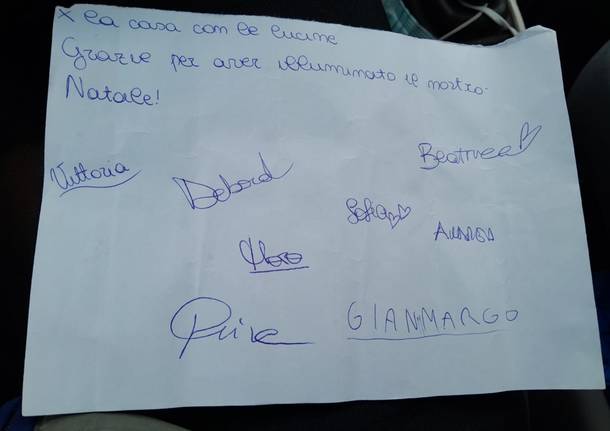 X la casa con le lucine
Grazie per aver illuminato il nostro
Natale!
Beatrice
Vittoria
Debora
Sofia
GIANMARCO